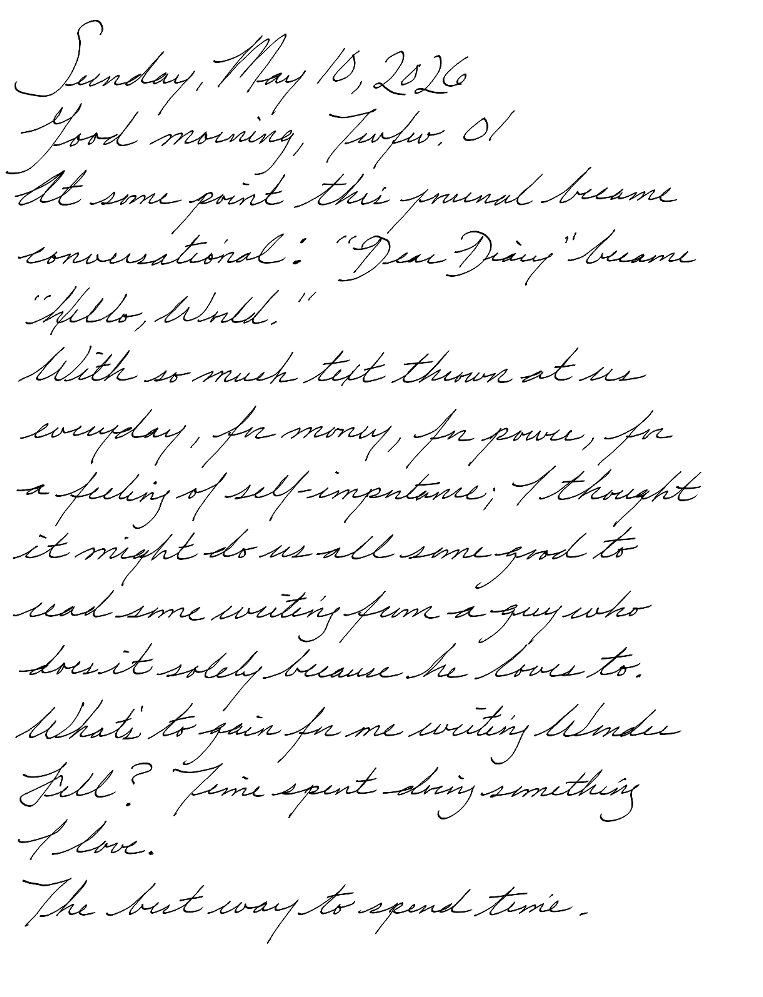 Sunday, May 10, 2026
Good morning, Twfw. 01
At some point this journal became
conversational: "Dear Diary" became
"Hello, World."
With so much text thrown at us
everyday, for money, for power, for
a feeling of self-importance; I thought
it might do us all some good to
read some writing from a guy who
does it solely because he loves to.
What's to gain for me writing Wonder
Fell? Time spent doing something
I love.
The best way to spend time.